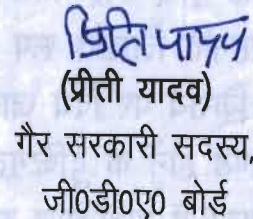 प्रीति यादव
(प्रीती यादव)
गैर सरकारी सदस्य,
जी0डी0ए0 बोर्ड